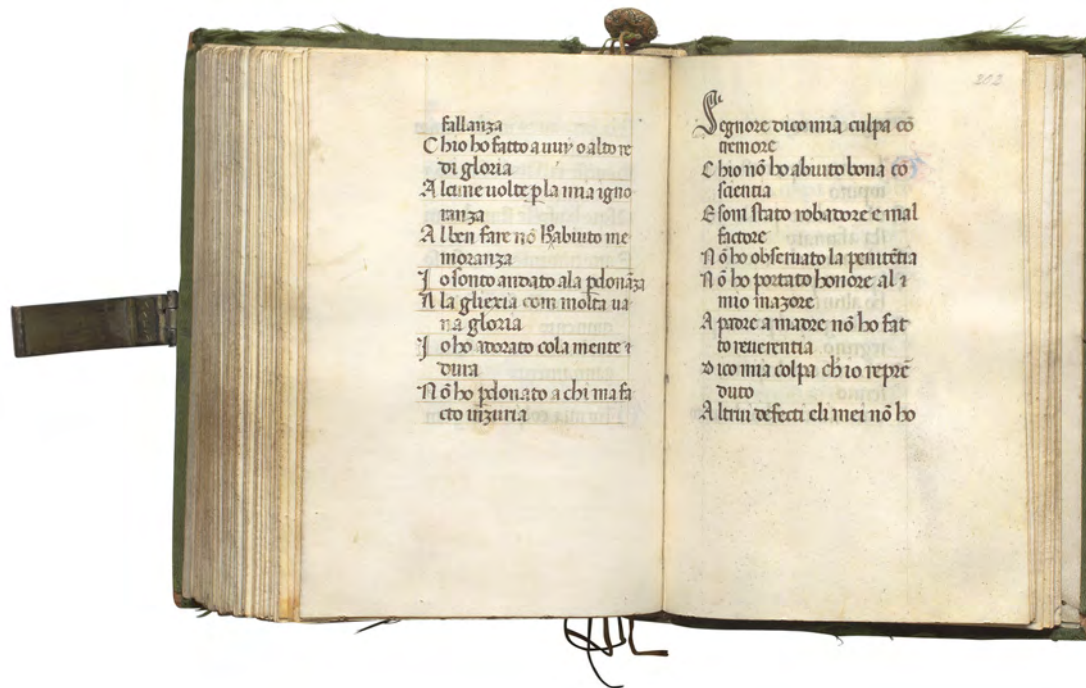 fallanza
Chio ho fatto a uuy o alto re
di gloria
Alcune uolte ꝑ la mia igno
ranza
Al ben fare nō ho abiuto me
moranza
Io sonto andato ala ꝑdonāza
A la gliexia com molta ua
na gloria
Io ho adorato cola mente ⁊
dura
Nō ho ꝑdonato a chi ma fa
cto inzuria
202
Segnore dico mia culpa cō
tremore
Chio nō ho abiuto bona cō
scientia
E som stato robadore e mal
factore
Nō ho obseruato la penitētia
Nō ho portato honore al ⁊
mio mazore
A padre a madre nō ho fat
to reuerentia
Dico mia colpa ch io reprē
duto
Altrui defecti eli mei nō ho